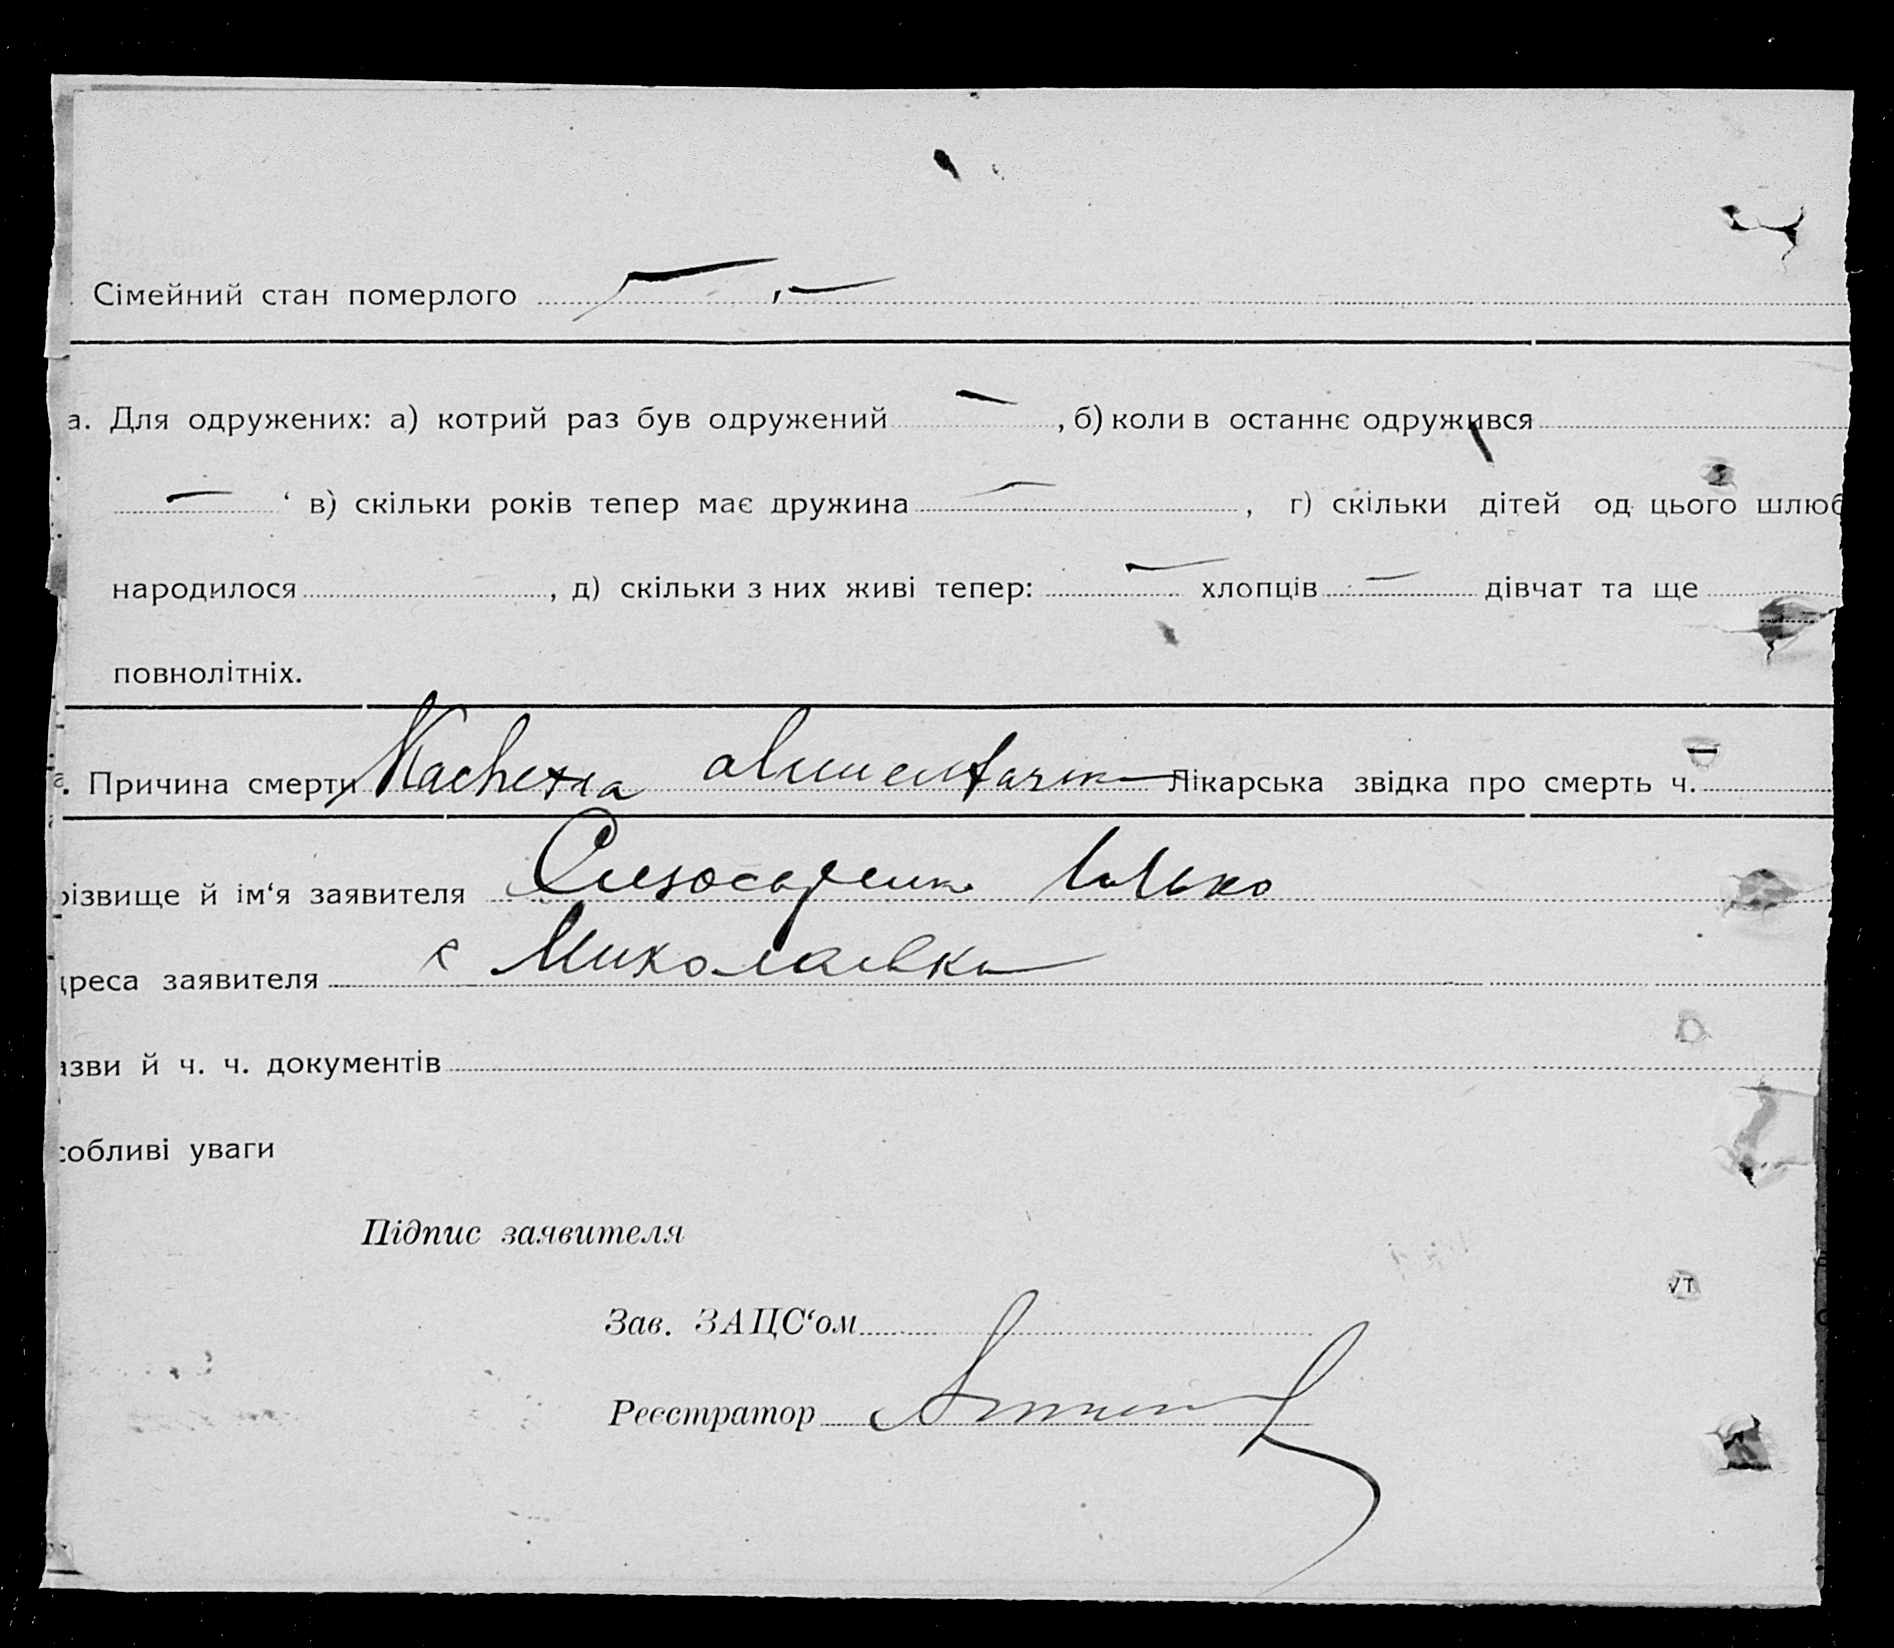 Сімейний стан померлого — , —
а. Для одружених: а) котрий раз був одружений — , б) коли в останнє одружився
— ‘ в) скільки років тепер має дружина — , г) скільки дітей од цього шлюб
народилося , д) скільки з них живі тепер: — хлопців — дівчат та ще
повнолітніх.
Причина смерти Лікарська звідка про смерть ч. —
різвище й ім‘я заявителя Илько
дреса заявителя с Миколаевка
азви й ч. ч. документів
собливі уваги
Підпис заявителя
Зав. ЗАЦС‘ом
Реєстратор